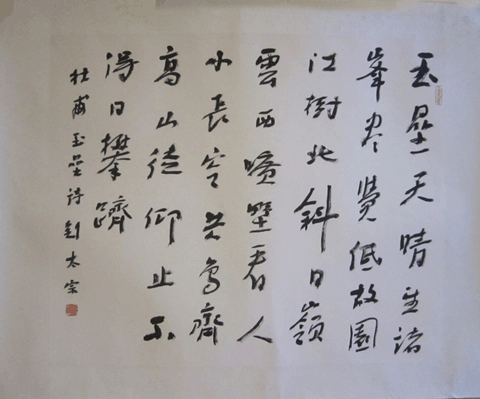 玉壘天晴望諸
峯尽覺低故園
江樹北斜日嶺
雲西曠壄看人
小長空共鳥齊
高山徒仰止不
得日攀躋
杜甫玉壘詩劉太宗